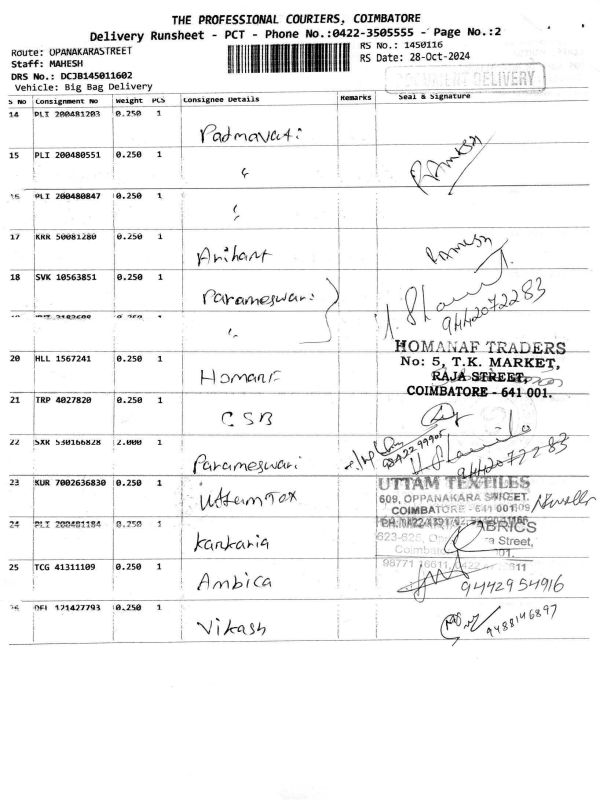 THE PROFESSIONAL COURIERS, COIMBATORE
Delivery Runsheet - PCT - Phone No.:0422-3505555 - Page No.:2
Route: OPANAKARASTREET
RS No.: 1450116
Staff: MAHESH
RS Date: 28-Oct-2024
DRS No.: DCJB145011602
Vehicle: Big Bag Delivery
DELIVERY
S No Consignment No Weight PCS Consignee Details Remarks Seal & Signature
14 PLI 200481203 0.250 1 Padmavati
15 PLI 200480551 0.250 1 "
Ramesh
16 PLI 200480847 0.250 1 "
17 KRR 50081280 0.250 1 Arihant
Ramesh
18 SVK 10563851 0.250 1 Parameswari
9442072283
0.250 1 "
HOMANAF TRADERS
No: 5, T.K. MARKET,
RAJA STREET,
COIMBATORE - 641 001.
20 HLL 1567241 0.250 1 Homanf
21 TRP 4027820 0.250 1 CSB
22 SXR 530166828 2.000 1 Parameswari
9442072283
23 KUR 7002636830 0.250 1 Uttam Tex
UTTAM TEXTILES
609, OPPANAKARA STREET,
COIMBATORE - 641 001
24 PLI 200481184 0.250 1 Kankaria
BRICS
623-625,
Street,
25 TCG 41311109 0.250 1 Ambica
9442954916
26 DEL 121427793 0.250 1 Vikash
9488146897